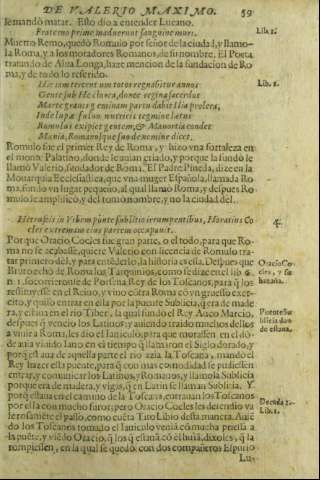 DE VALERIO MAXIMO. 59
le mandó matar. Esto dio a entender Lucano.
Fraterno primi maduerunt sanguine muri.
Lib. 1.
Muerto Remo, quedó Romulo por señor de la ciudad, y llamo-
la Roma, y a los moradores Romanos, de su nombre. El Poeta,
tratando de Alva Longa, haze mencion de la fundacion de Ro
ma, y de todo lo referido.
Hic iam tercentum totos regnabitur annos
Lib. 1.
Gente sub Hectorea, donec regina sacerdos
Marte gravis geminam partu dabit Ilia prolem,
Inde lupæ fulvo nutricis tegmine lætus
Romulus excipiet gentem, & Mavortia condet
Mœnia, Romanosque suo de nomine dicet.
Romulo fue el primer Rey de Roma, y hizo vna fortaleza en
el monte Palatino, donde le auian criado, y porque la fundò le
llamò Valerio, fundador de Roma. El Padre Pineda, dize en la
Monarquia Ecclesiastica, que vna muger Española, llamada Ro
ma, fundò vn lugar pequeño, al qual llamò Roma, y despues Ro
mulo le amplificò, y del tomò nombre, y no la ciudad del.
Hetruscis in Vrbem ponte sublicio irrumpentibus, Horatius Co
4.
cles extremam eius partem occupauit.
Por que Oracio Cocles fue gran parte, o el todo, para que Ro
ma no se acabasse, quiere Valerio con licencia de Romulo tra-
tar primero del, y para entederlo, la historia es esta. Despues que
Oracio Co
cles, y su
hazaña.
Bruto echò de Roma los Tarquinios, como se dize en el lib.
n. 1. socorrieronse de Porsena Rey de los Toscanos, para q̃ los
restituyesse en el Reino, y vino cõtra Roma cõ vn gruesso exer-
cito, y quiso entrar en ella por la puente Sublicia, q̃ era de made
ra, y estaua en el rio Tiber, la qual fundò el Rey Anco Marcio,
Puente Su
blicia dõ
de estaua.
despues q̃ vencio los Latinos, y auiendo traido muchos dellos
a viuir a Roma, les dio el Ianiculo, para que morassen en el dõ-
de auia viuido Iano en el tiempo q̃ llamaron el Siglo dorado, y
porq̃ està aua de aquella parte el rio azia la Toscana, mandò el
Rey hazer esta puente, para q̃ con mas comodidad se pudiessen
entrar, y comunicar los Latinos, y Romanos, y llamòla Sublicia
porque era de madera, y vigas, q̃ en Latin se llaman Sublicia. Y
porq̃ estaua en el camino de la Toscana, entrauan los Toscanos
por ella con mucho furor, pero Oracio Cocles les defendio va
Decada 1.
Lib. 2.
lerosamẽte el passo, como cuẽta Tito Liuio desta manera. Auiẽ
do los Toscanos tomado el Ianiculo venia cõ mucha priessa a
la puẽte, y viẽdo Oracio, q̃ los q̃ estauã cõ el huiã, dixoles, q̃ la
rompiessen, en la qual se quedò con dos compañeros Espurio
Lu-